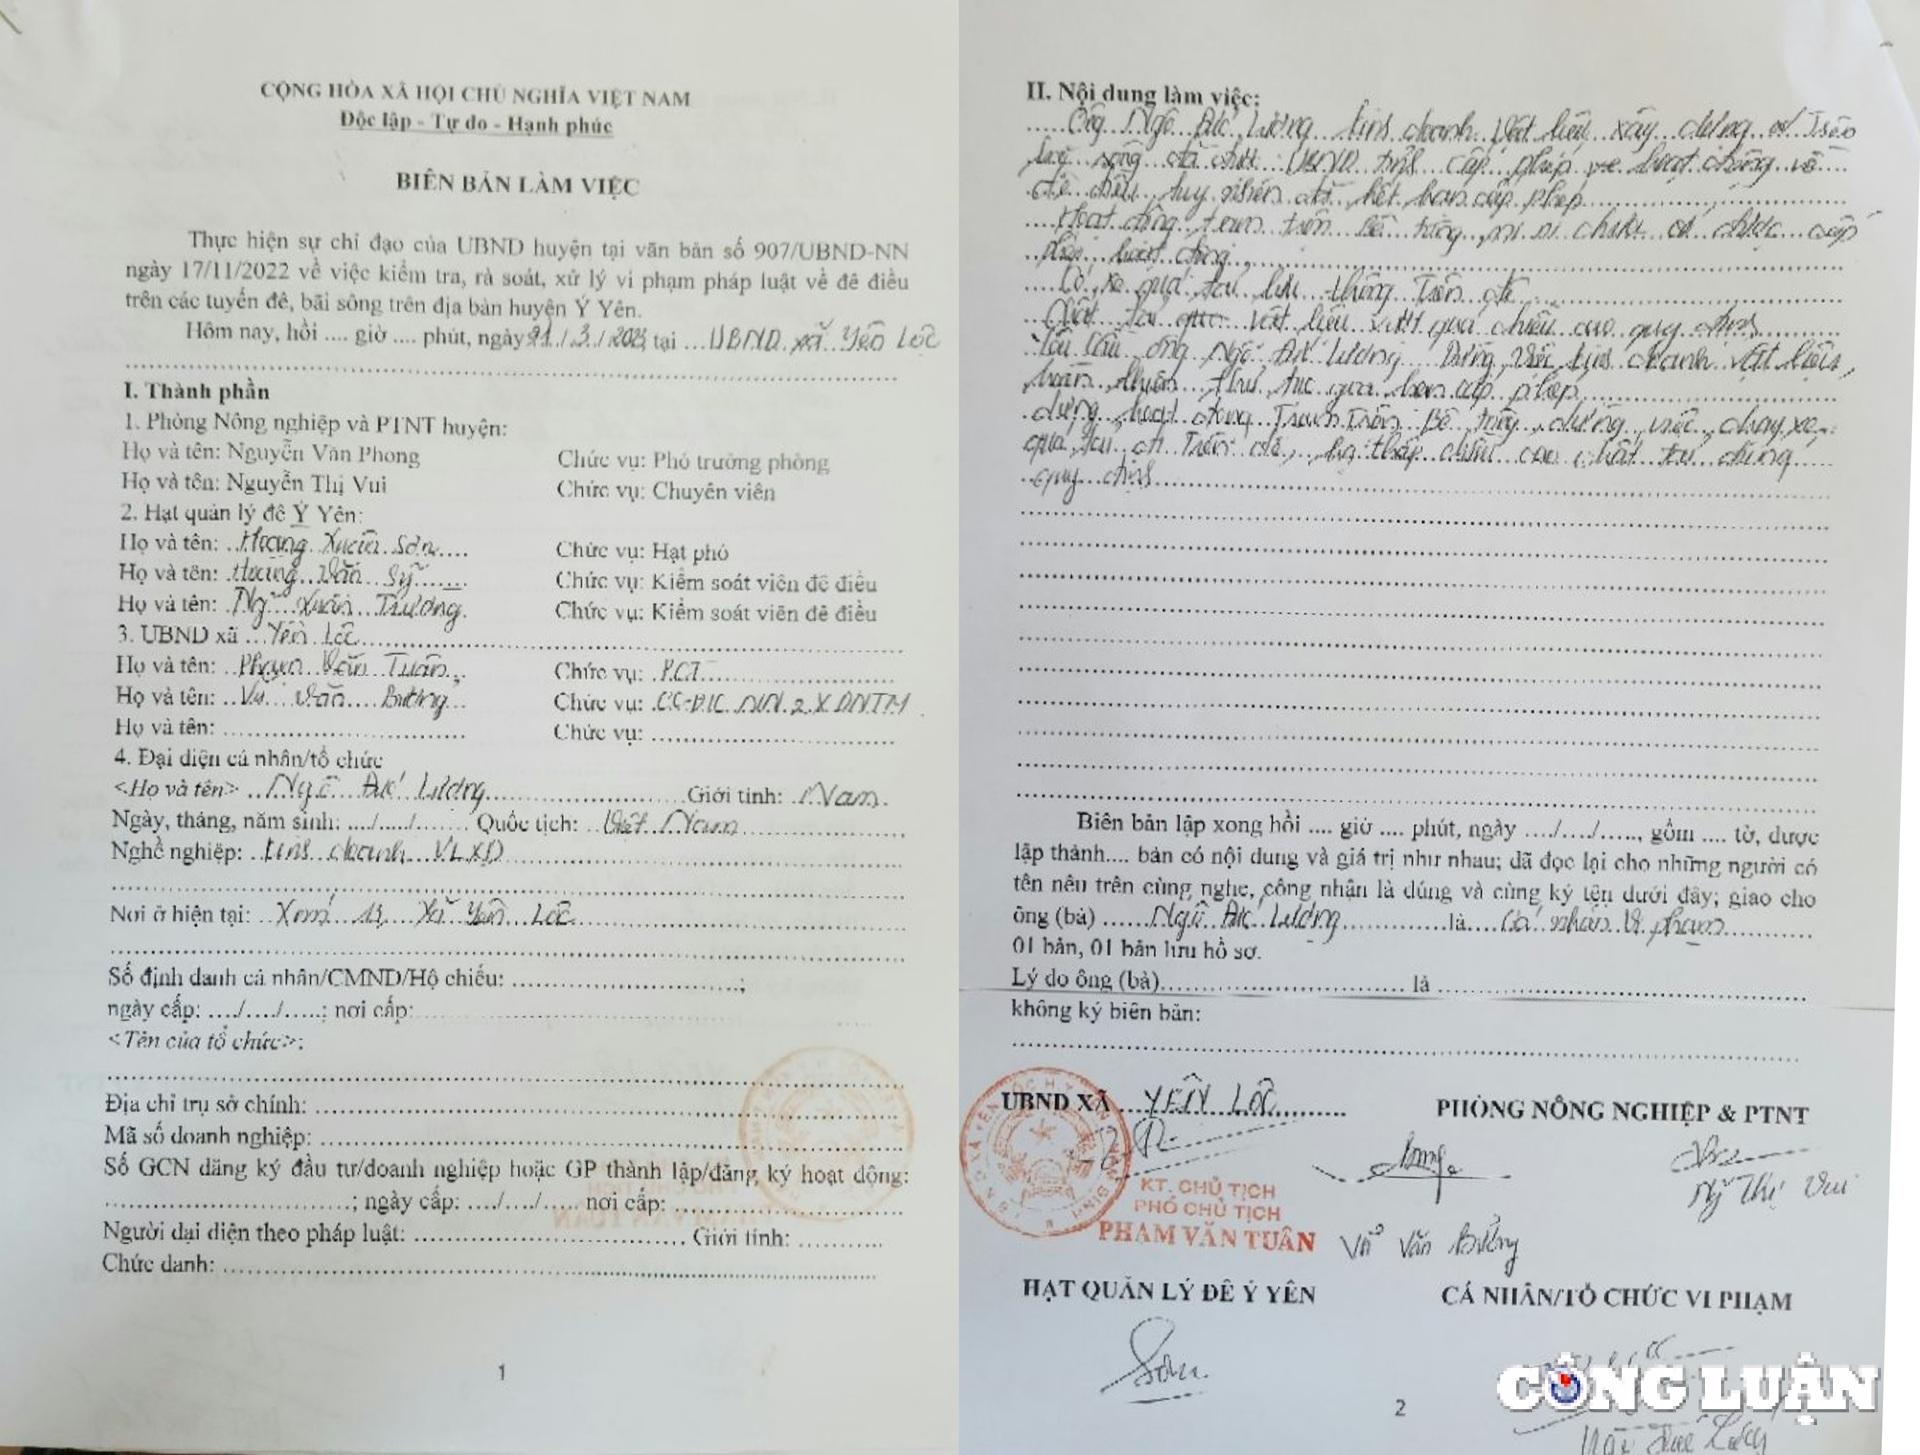 CỘNG HÒA XÃ HỘI CHỦ NGHĨA VIỆT NAM
Độc lập - Tự do - Hạnh phúc
BIÊN BẢN LÀM VIỆC
Thực hiện sự chỉ đạo của UBND huyện tại văn bản số 907/UBND-NN
ngày 17/11/2022 về việc kiểm tra, rà soát, xử lý vi phạm pháp luật về đê điều
trên các tuyến đê, bãi sông trên địa bàn huyện Ý Yên.
Hôm nay, hồi .... giờ .... phút, ngày 21/3/2023 tại ...UBND xã Yên Lộc
I. Thành phần
1. Phòng Nông nghiệp và PTNT huyện:
Họ và tên: Nguyễn Văn Phong Chức vụ: Phó trưởng phòng
Họ và tên: Nguyễn Thị Vui Chức vụ: Chuyên viên
2. Hạt quản lý đê Ý Yên:
Họ và tên: Hoàng Xuân Sơn Chức vụ: Hạt phó
Họ và tên: Hoàng Văn Sỹ Chức vụ: Kiểm soát viên đê điều
Họ và tên: Ng Xuân Trường Chức vụ: Kiểm soát viên đê điều
3. UBND xã Yên Lộc
Họ và tên: Phạm Văn Tuân Chức vụ: P.CT
Họ và tên: Vũ Văn Bường Chức vụ: CC-ĐC NN & XDNTM
Họ và tên: Chức vụ:
4. Đại diện cá nhân/tổ chức
<Họ và tên> Ngô Đức Lượng Giới tính: Nam
Ngày, tháng, năm sinh: ..../...../....... Quốc tịch: Việt Nam
Nghề nghiệp: Kinh doanh VLXD
Nơi ở hiện tại: Xóm Xã Yên Lộc
Số định danh cá nhân/CMND/Hộ chiếu: ;
ngày cấp: ..../..../.....; nơi cấp:
<Tên của tổ chức>:
Địa chỉ trụ sở chính:
Mã số doanh nghiệp:
Số GCN đăng ký đầu tư/doanh nghiệp hoặc GP thành lập/đăng ký hoạt động:
; ngày cấp: ..../..../..... nơi cấp:
Người đại diện theo pháp luật: Giới tính:
Chức danh:
1
II. Nội dung làm việc:
Ông Ngô Đức Lượng kinh doanh vật liệu xây dựng ở Trên
sông đã được UBND tỉnh cấp phép hoạt động về
đê điều, tuy nhiên đã hết hạn cấp phép
Hoạt động trạm trộn bê tông mi ni chưa được cấp
phép hoạt động.
Có xe quá tải lưu thông Trên đê
Chất tải vật liệu vượt quá chiều cao quy định
Yêu cầu ông Ngô Đức Lượng Dừng việc kinh doanh vật liệu,
hoàn thiện thủ tục gia hạn cấp phép
dừng hoạt động Trạm Trộn Bê tông, dừng việc chạy xe
quá tải đi Trên đê, hạ thấp chiều cao chất tải đúng
quy định
Biên bản lập xong hồi .... giờ .... phút, ngày ..../..../....., gồm .... tờ, được
lập thành.... bản có nội dung và giá trị như nhau; đã đọc lại cho những người có
tên nêu trên cùng nghe, công nhận là đúng và cùng ký tên dưới đây; giao cho
ông (bà) Ngô Đức Lượng là Cá nhân Vi phạm
01 bản, 01 bản lưu hồ sơ.
Lý do ông (bà) là
không ký biên bản:
UBND XÃ YÊN LỘC PHÒNG NÔNG NGHIỆP & PTNT
KT. CHỦ TỊCH
PHÓ CHỦ TỊCH
PHẠM VĂN TUÂN
Ng Thị Vui
Vũ Văn Bường
HẠT QUẢN LÝ ĐÊ Ý YÊN CÁ NHÂN/TỔ CHỨC VI PHẠM
Sơn
CÔNG LUẬN
2